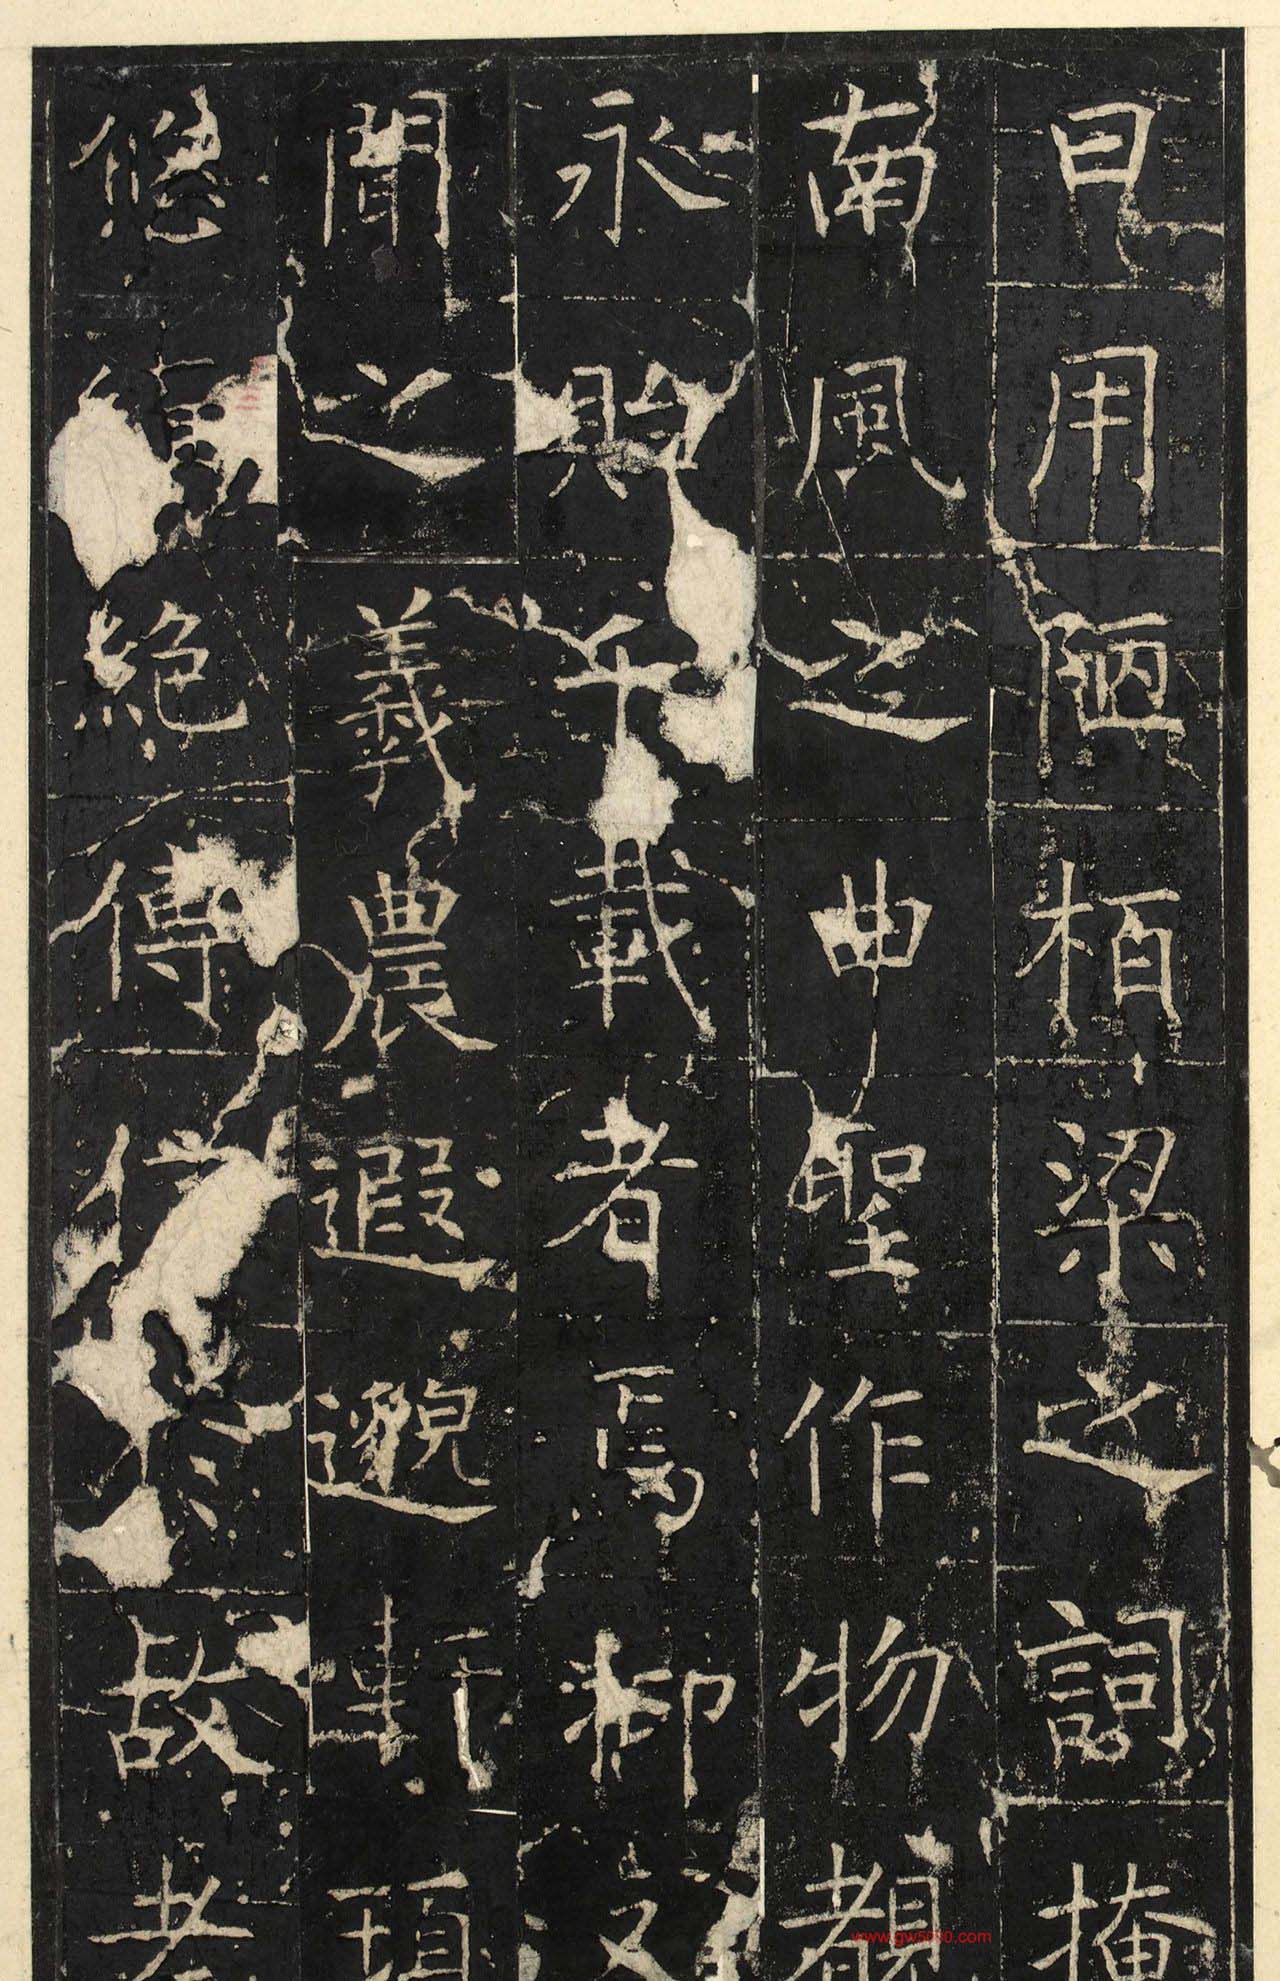 日用陋栢梁之詞掩
南風之曲聖作物覩
永貽千載者焉却
聞之羲農遐邈軒頊
悠絶傳故老
www.gw5000.com